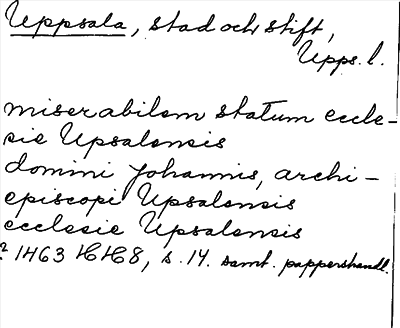 Uppsala, stad och stift,
Upps. l.
miserabilem statum eccle-
sie Upsalensis
domini Johannis, archi-
episcopi Upsalensis
ecclesie Upsalensis
? 1463 8, s. 14. samt. pappershandl.